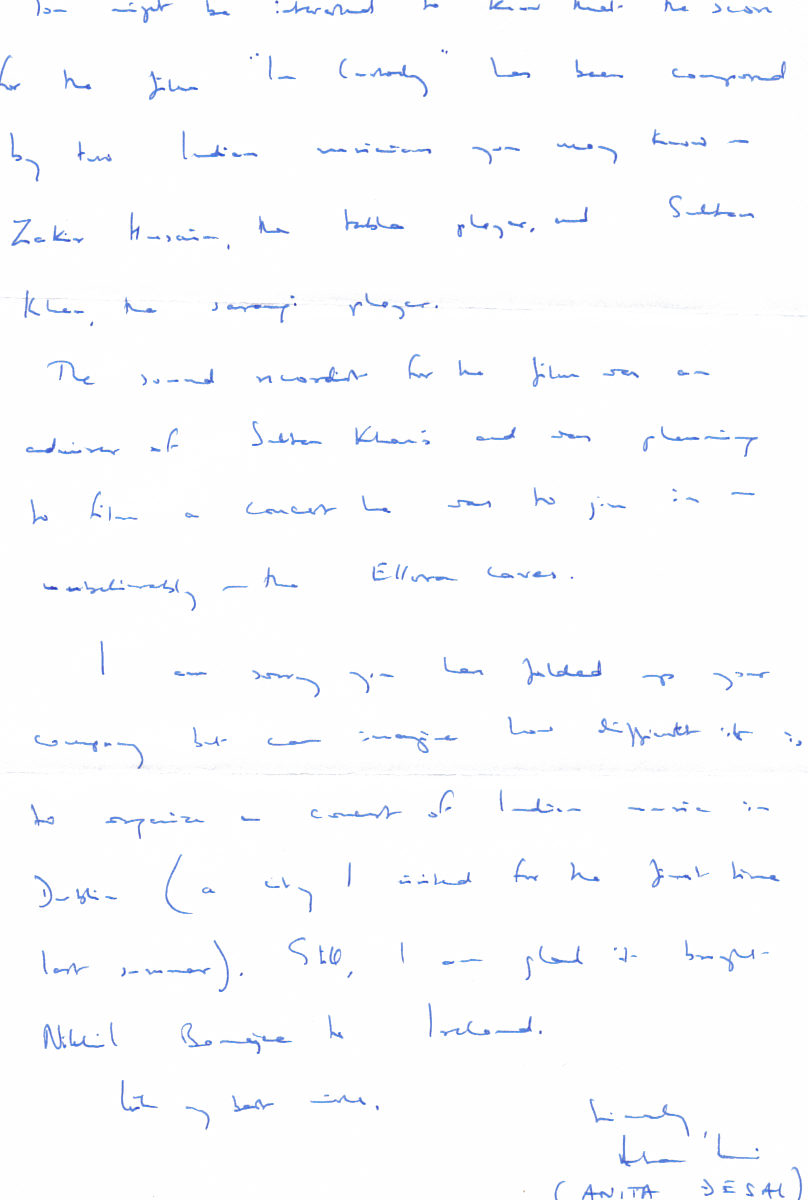 You might be interested to know that the score
for the film "In Custody" has been composed
by two Indian musicians you may know –
Zakir Husain, the tabla player, and Sultan
Khan, the sarangi player.
The sound recordist for the film was an
admirer of Sultan Khan's and was planning
to film a concert he was to join in –
unbelievably – the Ellora caves.
I am sorry you have folded up your
company but can imagine how difficult it is
to organize a concert of Indian music in
Dublin (a city I visited for the first time
last summer). Still, I am glad it brought
Nikhil Banerjee to Ireland.
With my best wishes,
Sincerely,
(ANITA DESAI)